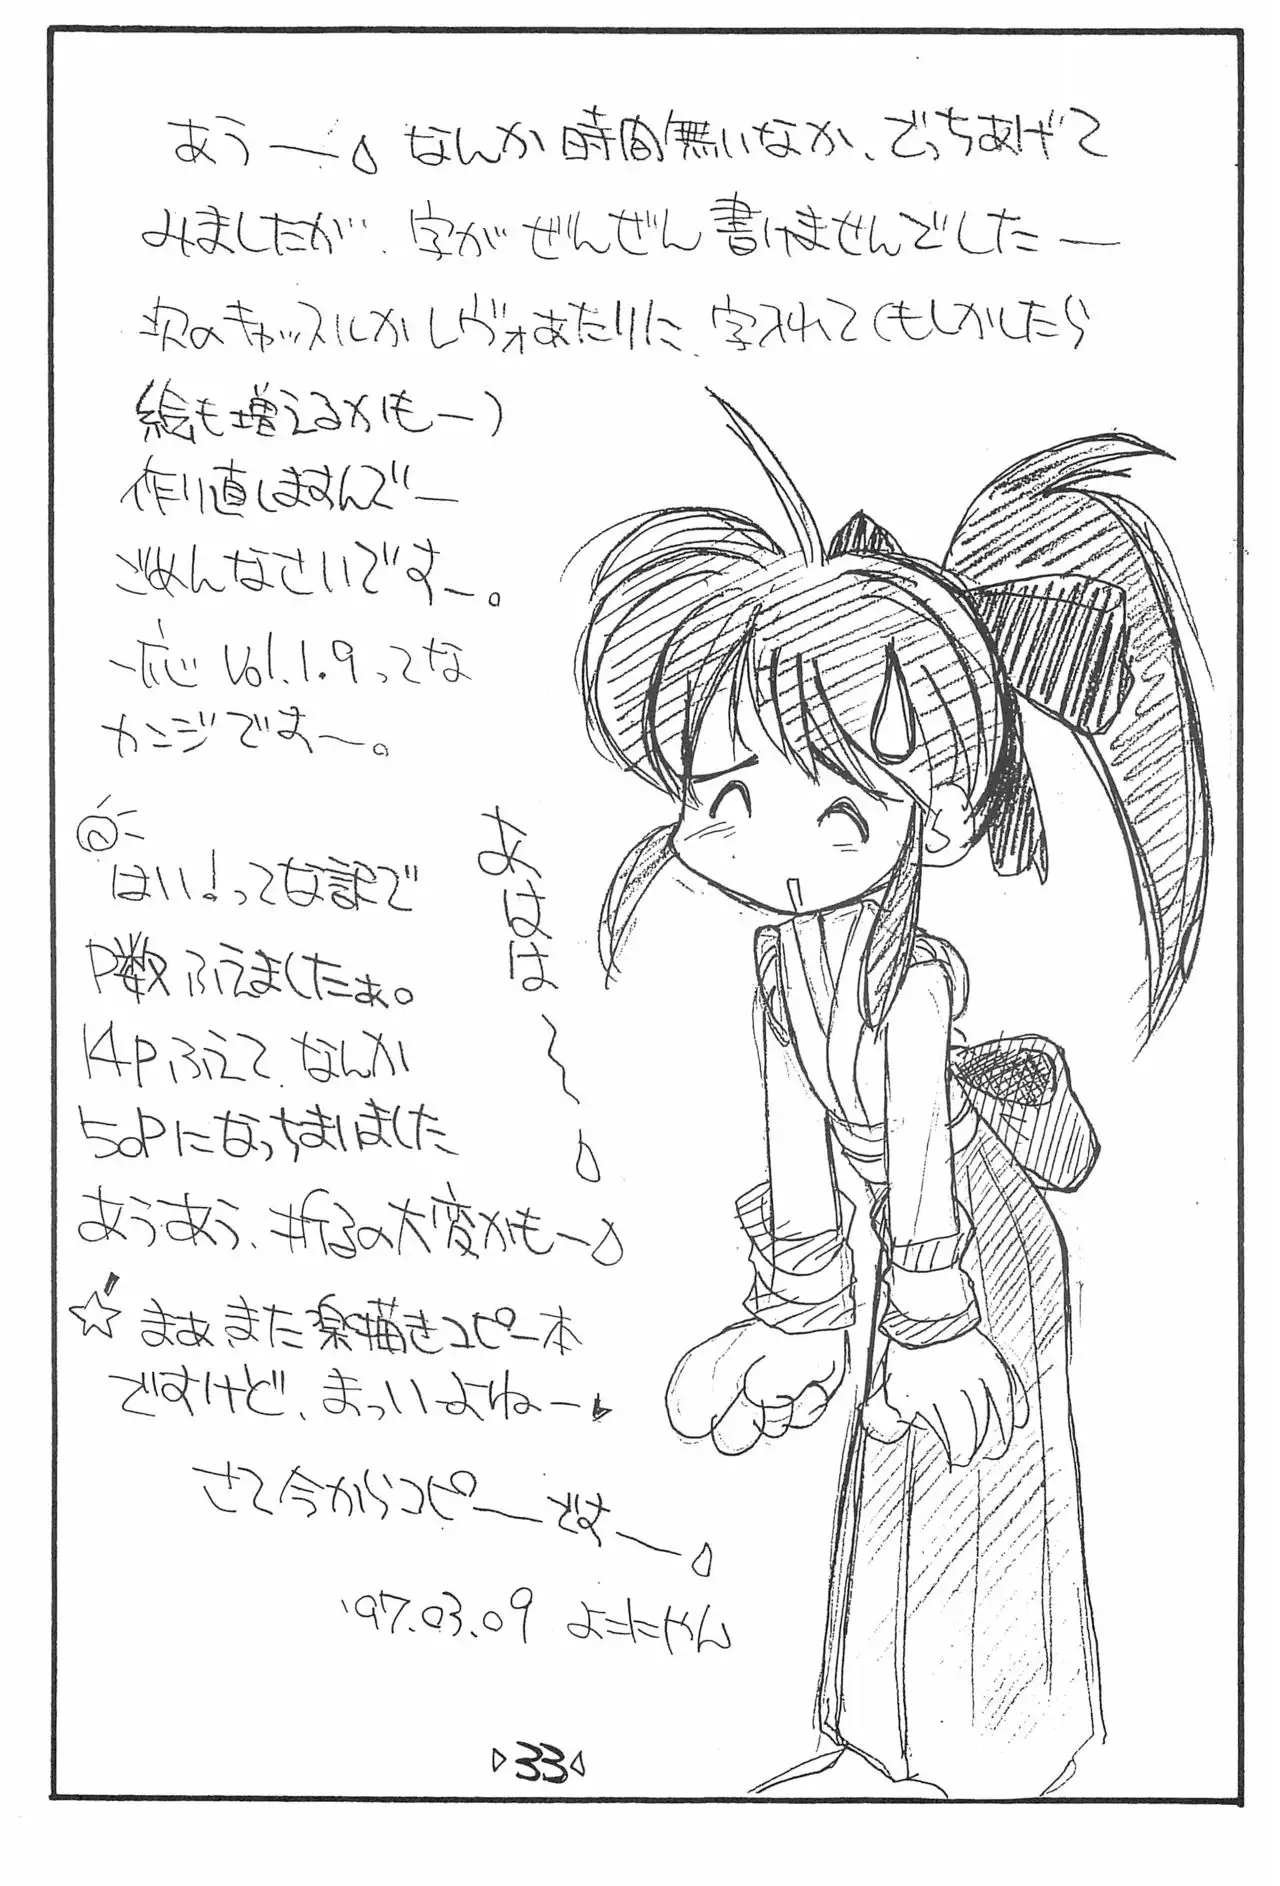 あうー なんか時間無いなか、でっちあげて
みましたが、字がぜんぜん書けませんでしたー
次のキャッスルかレヴォあたりに、字入れて(もしかしたら
絵も増えるかもー)
作り直しますんでー
ごめんなさいですー。
一応 Vol.1.9ってな
カンジですー。
はい!ってな訳で
P数ふえましたぁ。
14Pふえて、なんか
50Pになっちまいました
あうあう、折るの大変かもー
まぁまた楽描きコピー本
ですけど、まっいよねー
さて今からコピーですー
'97.03.09 よこたやん
あはは〜
33